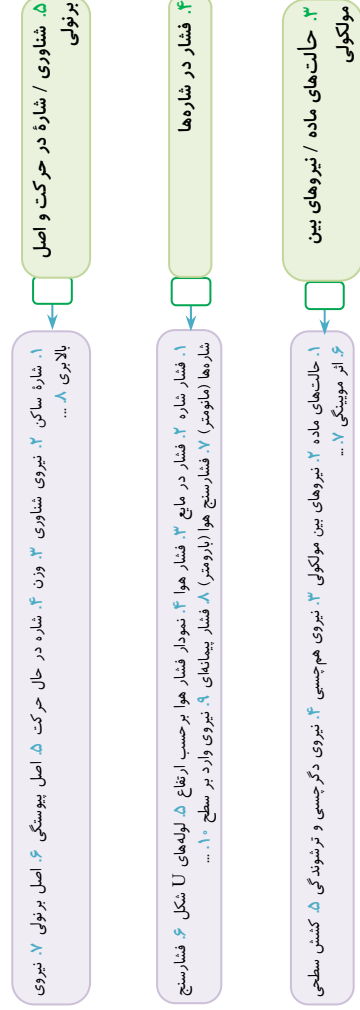 ۳. حالت‌های ماده / نیروهای بین
مولکولی
۱. حالت‌های ماده ۲. نیروهای بین مولکولی ۳. نیروی هم‌چسبی ۴. نیروی دگرچسبی و ترشوندگی ۵. کشش سطحی
۶. اثر مویینگی ۷. ...
۴. فشار در شاره‌ها
۱. فشار شاره ۲. فشار در مایع ۳. فشار هوا ۴. نمودار فشار هوا برحسب ارتفاع ۵. لوله‌های U شکل ۶. فشارسنج
شاره‌ها (مانومتر) ۷. فشارسنج هوا (بارومتر) ۸. فشار پیمانه‌ای ۹. نیروی وارد بر سطح ۱۰. ...
۵. شناوری / شارهٔ در حرکت و اصل
برنولی
۱. شارهٔ ساکن ۲. نیروی شناوری ۳. وزن ۴. شاره در حال حرکت ۵. اصل پیوستگی ۶. اصل برنولی ۷. نیروی
بالابری ۸. ...